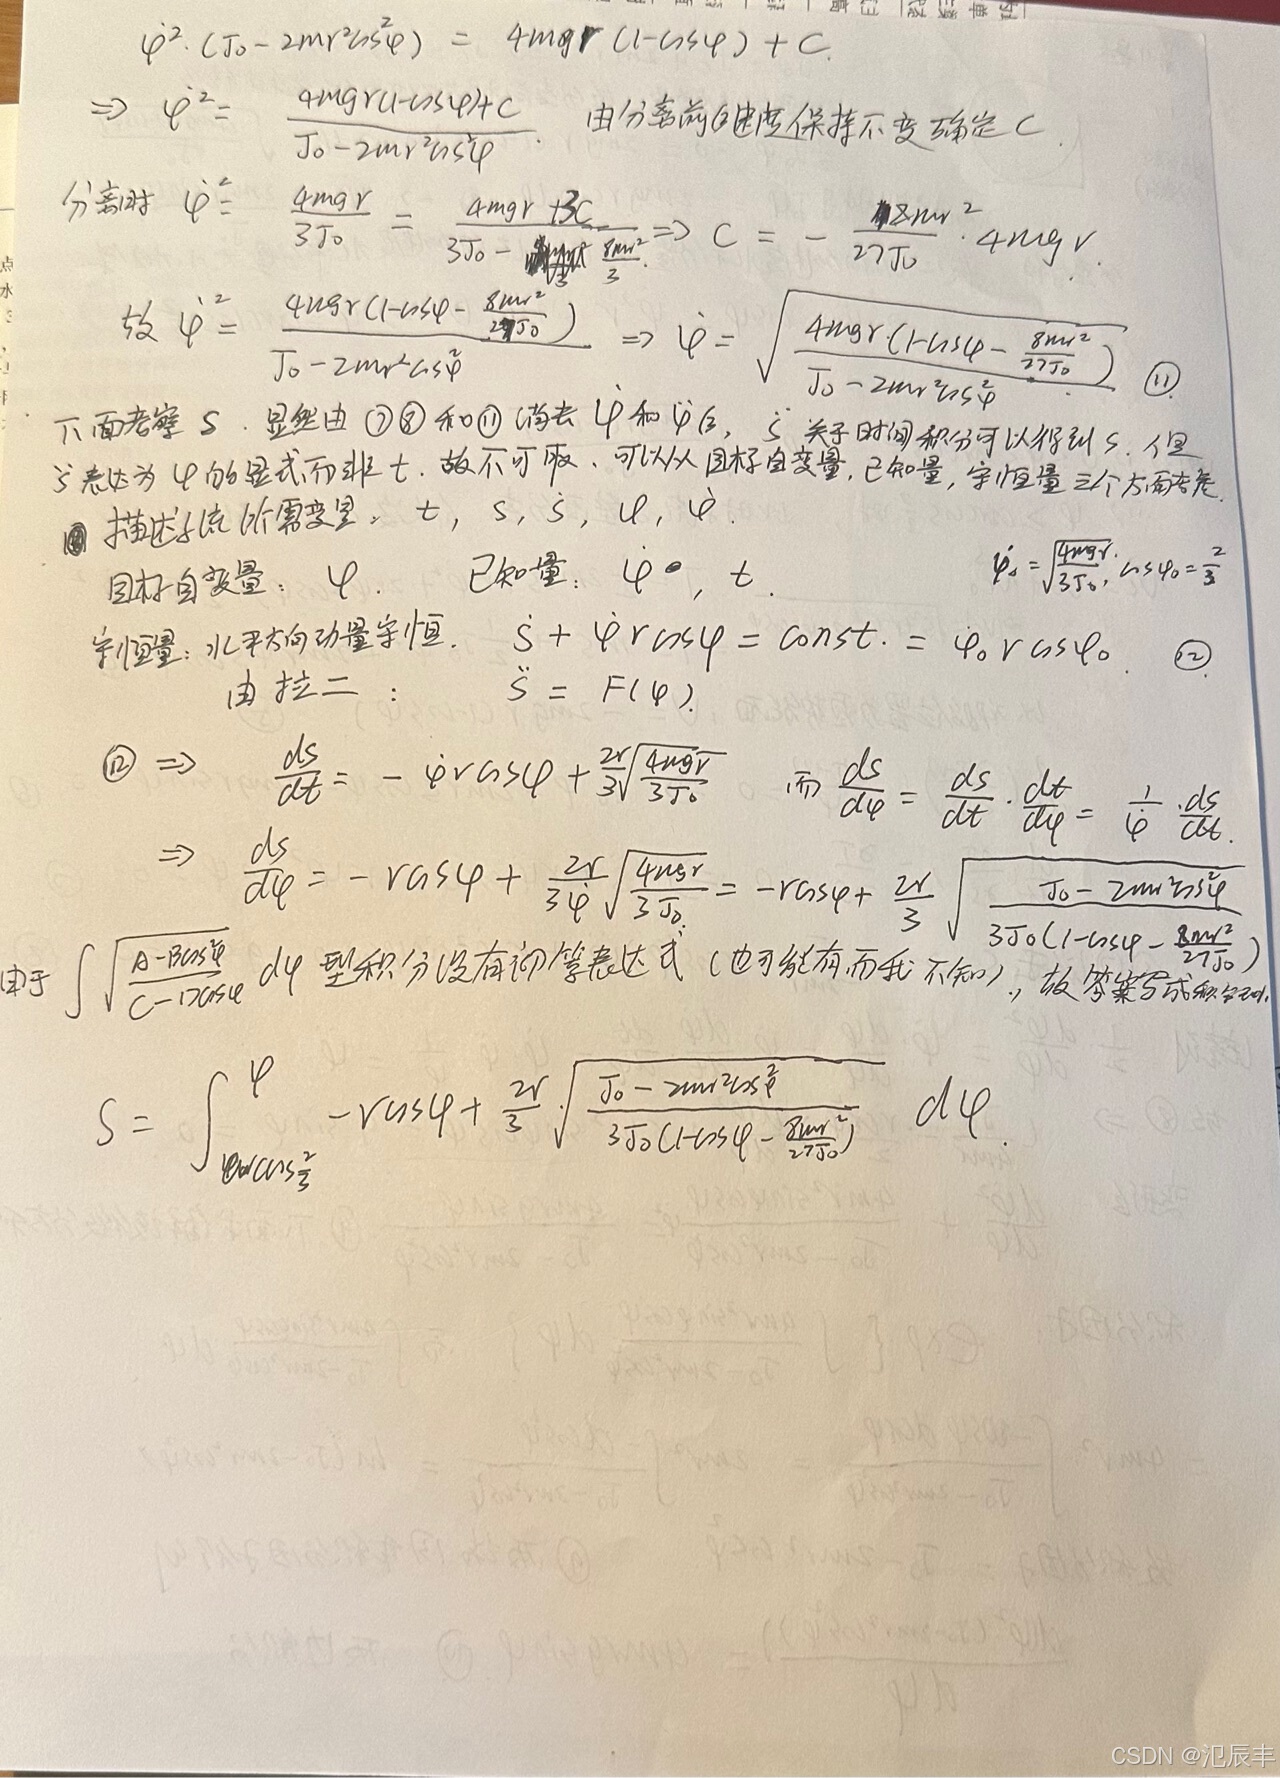 φ̇²·(J₀-2mr²cos²φ) = 4mgr(1-cosφ)+C.
⇒ φ̇² = (4mgr(1-cosφ)+C)/(J₀-2mr²cos²φ). 由分离前后速度保持不变确定C.
分离时 φ̇² = 4mgr/3J₀ = (4mgr+3C)/(3J₀-8mr²/3) ⇒ C = -8mr²/27J₀·4mgr.
故 φ̇² = 4mgr(1-cosφ-8mr²/27J₀)/(J₀-2mr²cos²φ) ⇒ φ̇ = √(4mgr(1-cosφ-8mr²/27J₀)/(J₀-2mr²cos²φ)) ⑪
下面考察S. 显然由⑦⑧和⑪消去φ̇和φ̈后, s̈关于时间积分可以得到S. 但
s̈表达为φ的显式而非t. 故不可取. 可以从目标自变量, 已知量, 守恒量三个方面考虑.
描述系统所需变量: t, s, ṡ, φ, φ̇.
目标自变量: φ. 已知量: φ̇, t. φ̇₀=√(4mgr/3J₀), cosφ₀=2/3
守恒量: 水平方向动量守恒. ṡ+φ̇rcosφ = const. = φ̇₀rcosφ₀. ⑫
由拉二: s̈ = F(φ).
⑫ ⇒ ds/dt = -φ̇rcosφ+2r/3√(4mgr/3J₀) 而 ds/dφ = ds/dt·dt/dφ = 1/φ̇·ds/dt.
⇒ ds/dφ = -rcosφ+2r/3φ̇√(4mgr/3J₀) = -rcosφ+2r/3√((J₀-2mr²cos²φ)/(3J₀(1-cosφ-8mr²/27J₀)))
由于 ∫√((A-Bcos²φ)/(C-Dcosφ)) dφ 型积分没有初等表达式 (也可能有而我不知), 故答案写成积分式.
S = ∫_{arccos2/3}^{φ} -rcosφ+2r/3·√((J₀-2mr²cos²φ)/(3J₀(1-cosφ-8mr²/27J₀))) dφ.
CSDN @氾辰丰